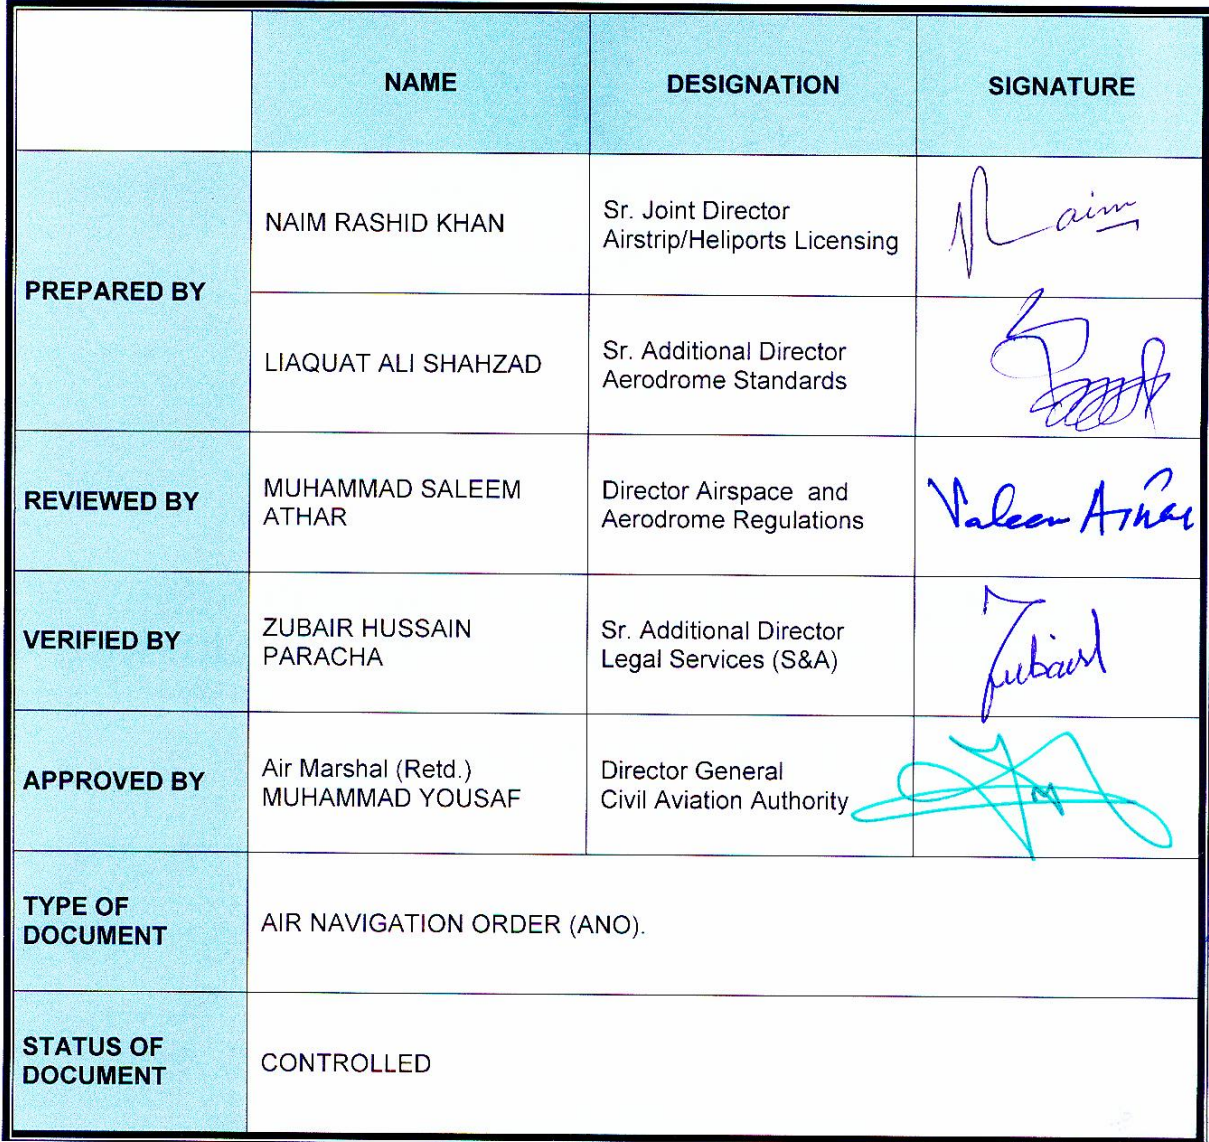 NAME DESIGNATION SIGNATURE
PREPARED BY
NAIM RASHID KHAN
Sr. Joint Director
Airstrip/Heliports Licensing
Naim
LIAQUAT ALI SHAHZAD
Sr. Additional Director
Aerodrome Standards
REVIEWED BY
MUHAMMAD SALEEM
ATHAR
Director Airspace and
Aerodrome Regulations
Saleem Athar
VERIFIED BY
ZUBAIR HUSSAIN
PARACHA
Sr. Additional Director
Legal Services (S&A)
Zubair
APPROVED BY
Air Marshal (Retd.)
MUHAMMAD YOUSAF
Director General
Civil Aviation Authority
TYPE OF
DOCUMENT
AIR NAVIGATION ORDER (ANO).
STATUS OF
DOCUMENT
CONTROLLED